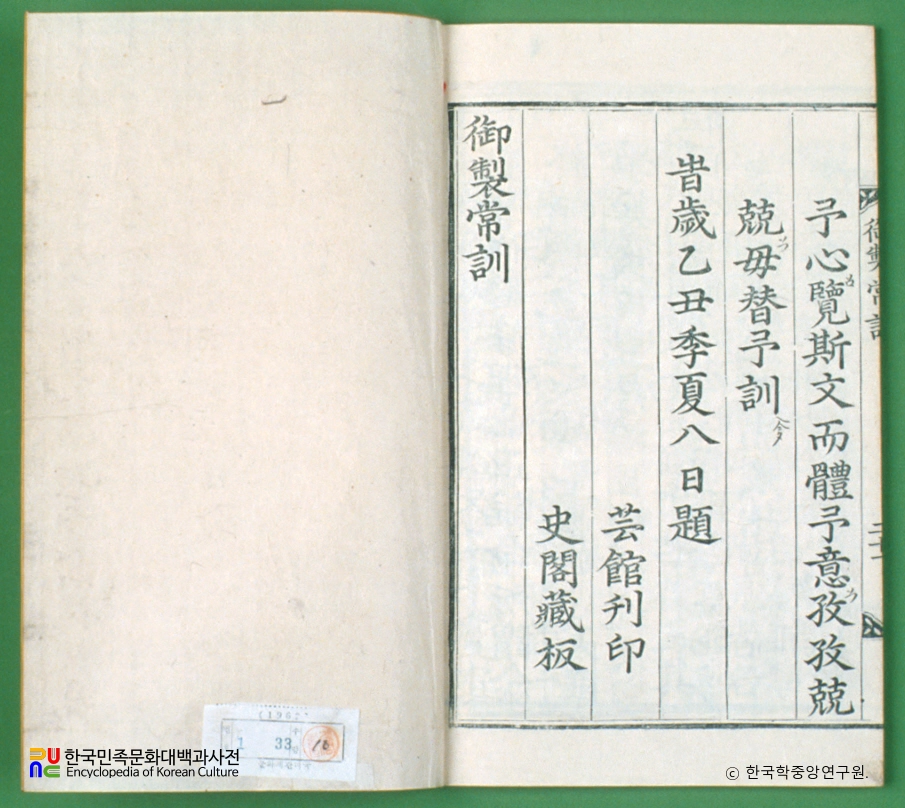 予心覽斯文而體予意孜孜兢
兢毋替予訓
旹歲乙丑季夏八日題
芸館刊印
史閣藏板
御製常訓
御製常訓
1 33 16
한국민족문화대백과사전
Encyclopedia of Korean Culture
ⓒ 한국학중앙연구원.